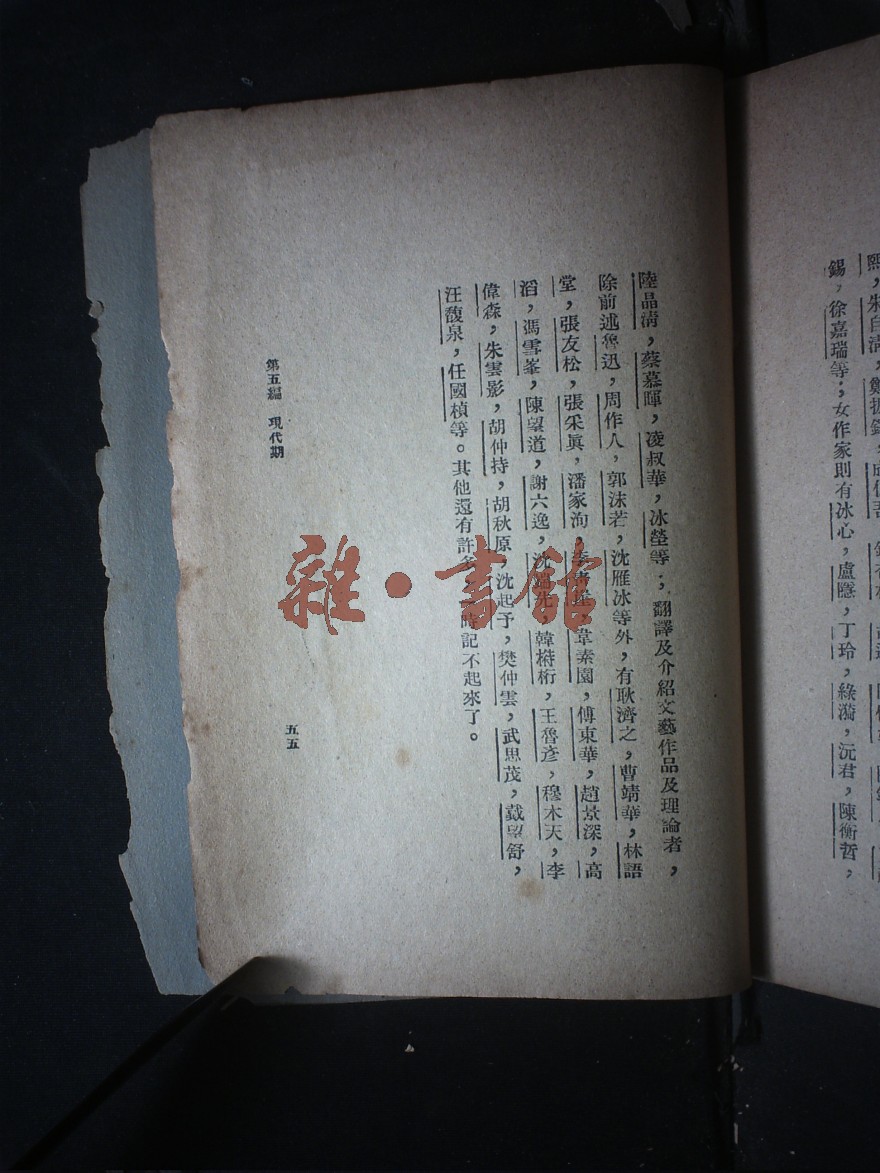 錫，徐嘉瑞等；女作家則有冰心，盧隱，丁玲，綠漪，沅君，陳衡哲，
陸晶清，蔡慕暉，凌叔華，冰瑩等；翻譯及介紹文藝作品及理論者，
除前述魯迅，周作人，郭沫若，沈雁冰等外，有耿濟之，曹靖華，林語
堂，張友松，張采眞，潘家洵，李霽野，韋素園，傅東華，趙景深，高
滔，馮雪峯，陳望道，謝六逸，沈端先，韓侍桁，王魯彥，穆木天，李
偉森，朱雲影，胡仲持，胡秋原，沈起予，樊仲雲，武思茂，戴望舒，
汪馥泉，任國楨等。其他還有許多，一時記不起來了。
第五編 現代期
五五
雜·書館